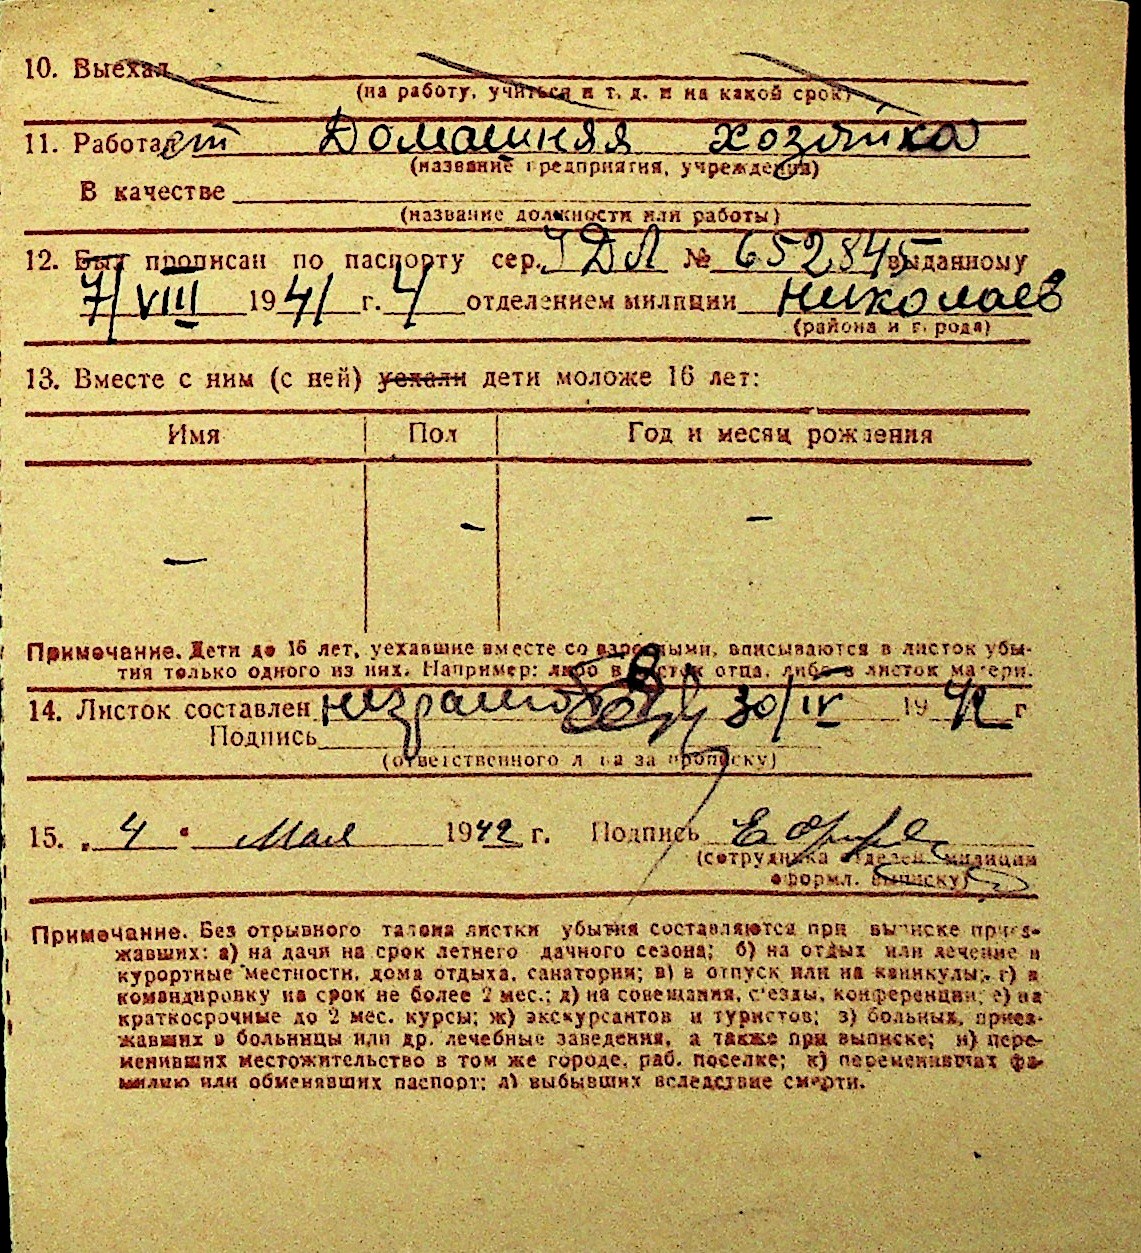 10. Выехал
(на работу, учиться и т. д. и на какой срок)
11. Работает Домашняя хозяйка
(название предприятия, учреждения)
В качестве
(название должности или работы)
12. Был прописан по паспорту сер. № 652845 выданному
7/VIII 1941 г. 4 отделением милиции Николаев
(района и города)
13. Вместе с ним (с ней) уехали дети моложе 16 лет:
Имя Пол Год и месяц рождения
— — —
Примечание. Дети до 16 лет, уехавшие вместе со взрослыми, вписываются в листок убы-
тия только одного из них. Например: либо в листок отца, либо в листок матери.
14. Листок составлен 30/IV 1942 г
Подпись
(ответственного лица за прописку)
15. „4" Мая 1942 г. Подпись
(сотрудника отделен. милиции
оформл. выписку)
Примечание. Без отрывного талона листки убытия составляются при выписке приез-
жавших: а) на дачи на срок летнего дачного сезона; б) на отдых или лечение в
курортные местности, дома отдыха, санатории; в) в отпуск или на каникулы; г) в
командировку на срок не более 2 мес.; д) на совещания, с'езды, конференции; е) на
краткосрочные до 2 мес. курсы; ж) экскурсантов и туристов; з) больных, приез-
жавших в больницы или др. лечебные заведения, а также при выписке; и) пере-
менивших местожительство в том же городе, раб. поселке; к) переменивших фа-
милию или обменявших паспорт; л) выбывших вследствие смерти.